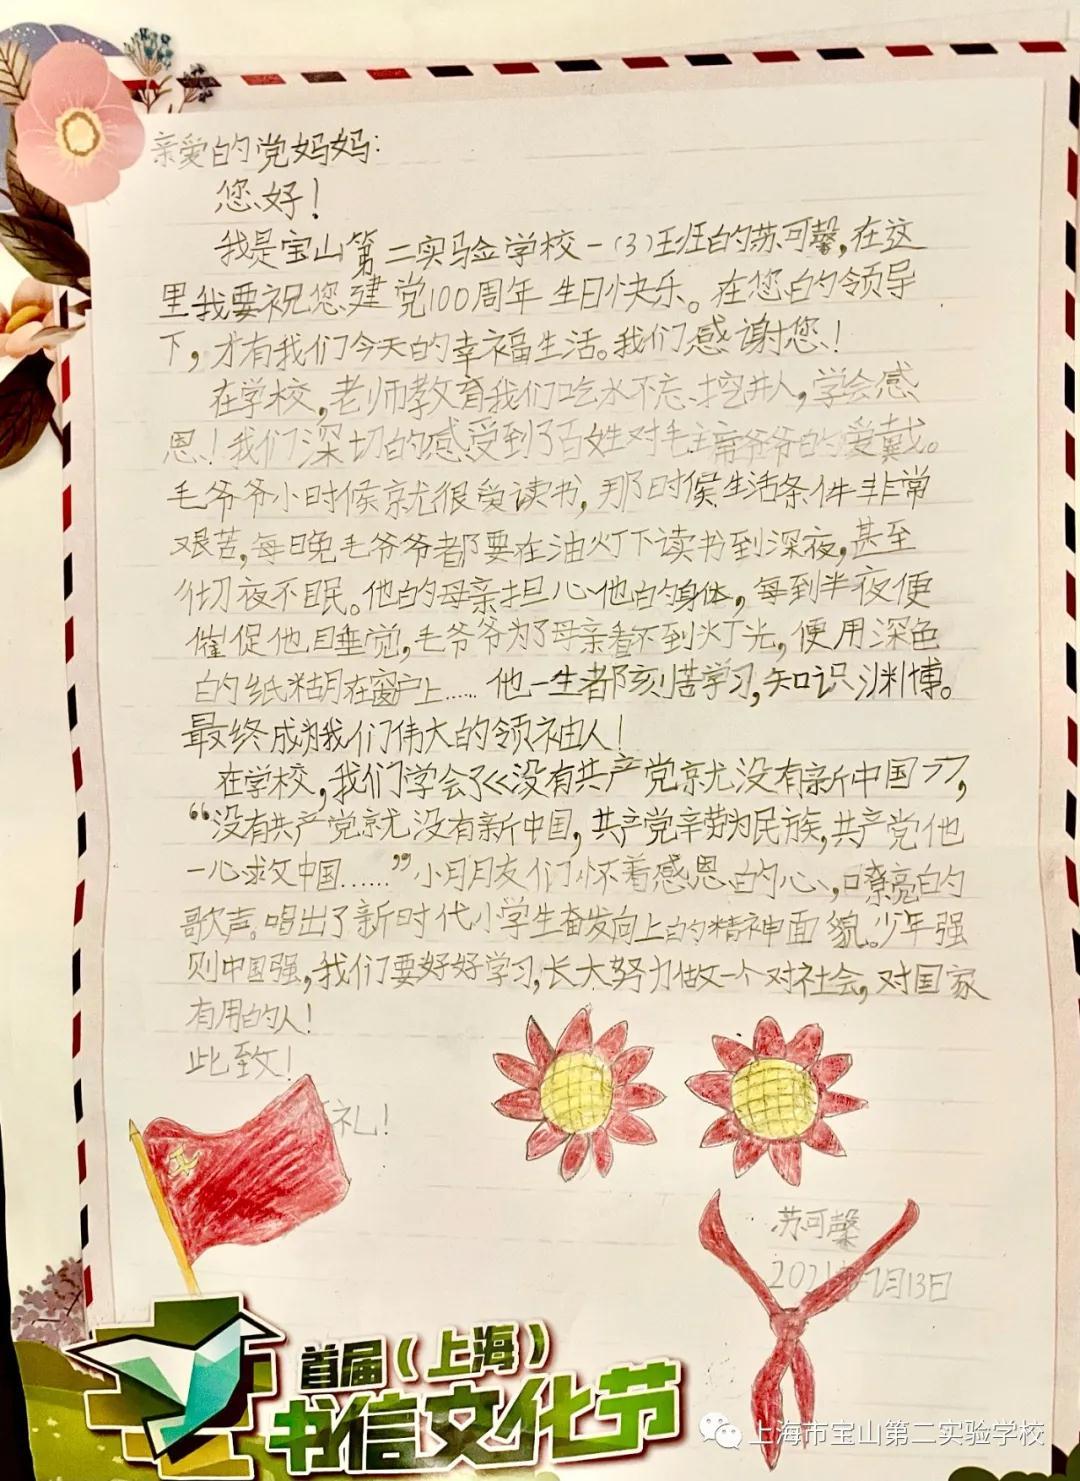 亲爱的党妈妈:
您好!
我是宝山第二实验学校一(3)班的苏可馨,在这
里我要祝您建党100周年生日快乐。在您的领导
下,才有我们今天的幸福生活。我们感谢您!
在学校,老师教育我们吃水不忘挖井人,学会感
恩!我们深切的感受到了百姓对毛主席爷爷的爱戴。
毛爷爷小时候就很爱读书,那时候生活条件非常
艰苦,每晚毛爷爷都要在油灯下读书到深夜,甚至
彻夜不眠。他的母亲担心他的身体,每到半夜便
催促他睡觉,毛爷爷为了母亲看不到灯光,便用深色
的纸糊在窗户上……他一生都刻苦学习,知识渊博。
最终成为我们伟大的领袖人!
在学校,我们学会了《没有共产党就没有新中国》,
“没有共产党就没有新中国,共产党辛劳为民族,共产党他
一心救中国……”小朋友们怀着感恩的心,嘹亮的
歌声。唱出了新时代小学生奋发向上的精神面貌。少年强
则中国强,我们要好好学习,长大努力做一个对社会,对国家
有用的人!
此致!
礼!
苏可馨
2021年7月13日
首届(上海)
书信文化节
上海市宝山第二实验学校